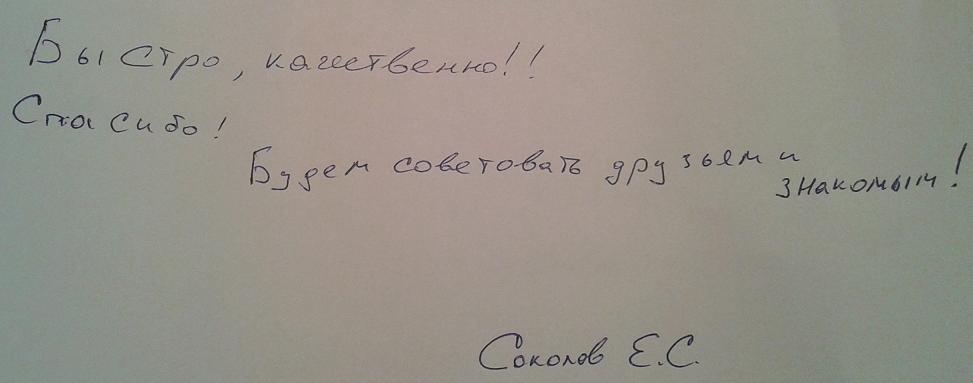 Быстро, качественно!!
Спасибо!
Будем советовать друзьям и
знакомым!
Соколов Е.С.